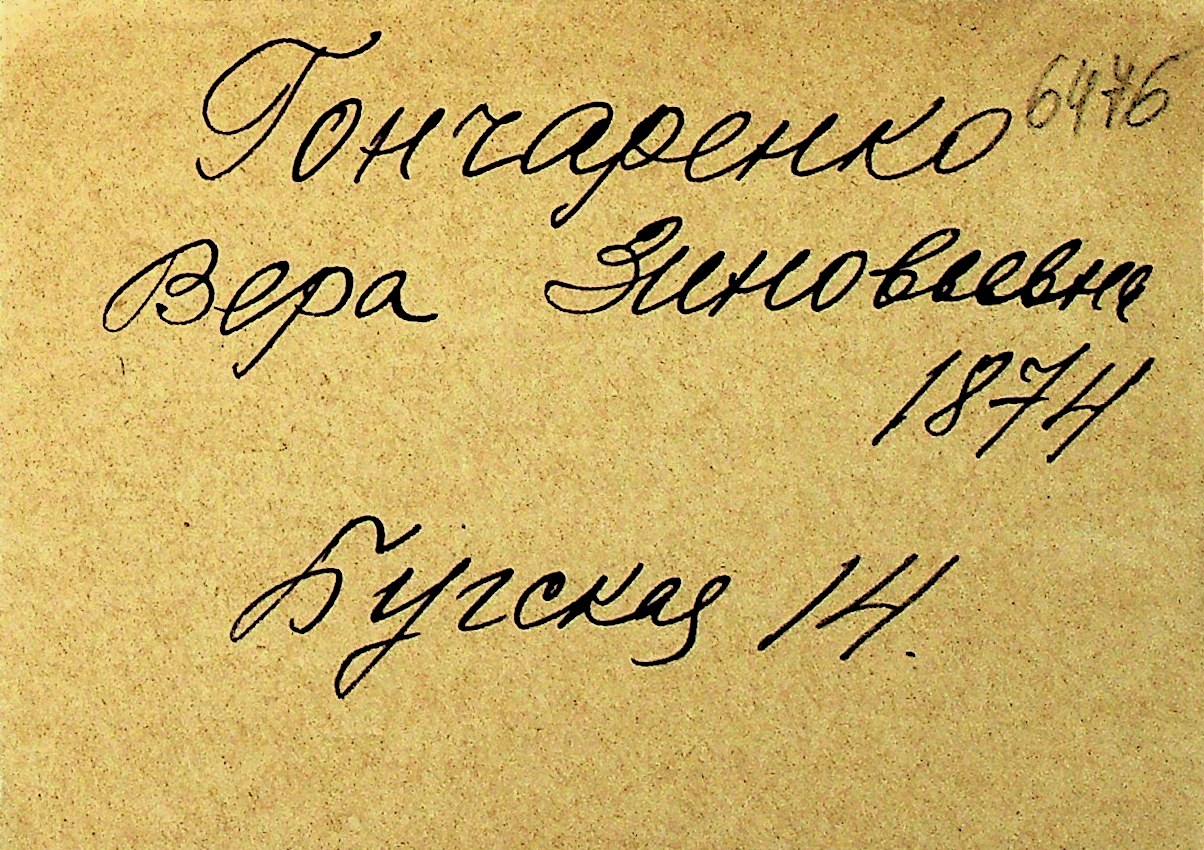 Гончаренко 6476
Вера Зиновьевна
1874
Бугская 14.